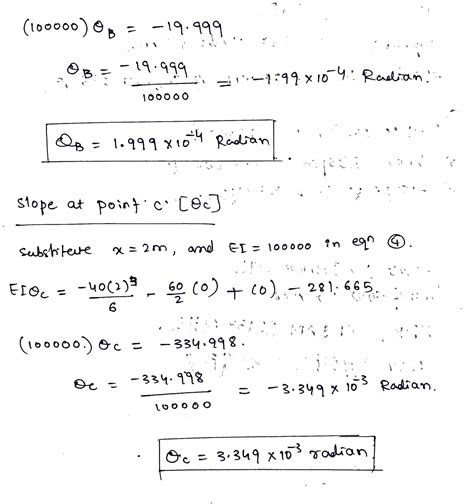 (100000) θB = -19.999
θB = -19.999 / 100000 = -1.99 × 10^-4 Radian.
θB = 1.999 × 10^-4 Radian
Slope at point c [θc]
substiteve x = 2m, and EI = 100000 in eqn ④.
EIθc = -40(2)^3 / 6 - 60/2 (0) + (0) - 281.665.
(100000.) θc = -334.998.
θc = -334.998 / 100000 = -3.349 × 10^-3 Radian.
θc = 3.349 × 10^-3 radian